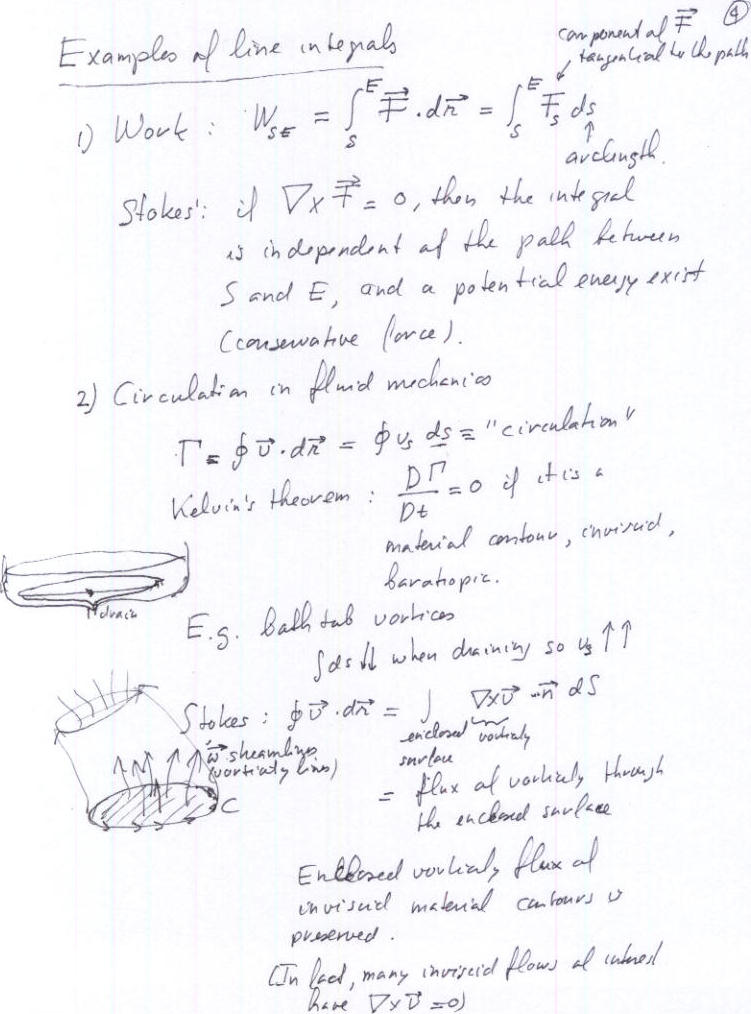 ④
Examples of line integrals
component of F⃗
tangential to the path
1) Work : W_SE = ∫_S^E F⃗ . dr⃗ = ∫_S^E F_s ds
arclength.
Stokes': if ∇×F⃗ = 0, then the integral
is independent of the path between
S and E, and a potential energy exist
(conservative force).
2) Circulation in fluid mechanics
Γ = ∮ v⃗ . dr⃗ = ∮ v_s ds ≡ "circulation"
Kelvin's theorem : DΓ/Dt = 0 if it is a
material contour, inviscid,
barotropic.
drain
E.g. bath tub vortices
∫ds ↓↓ when draining so v_s ↑↑
Stokes : ∮ v⃗ . dr⃗ = ∫ ∇×v⃗ . n⃗ dS
enclosed surface
vorticity
ω⃗ streamlines
(vorticity lines)
C
= flux of vorticity through
the enclosed surface
Enclosed vorticity flux of
inviscid material contours is
preserved.
(In fact, many inviscid flows of interest
have ∇×v⃗ = 0)